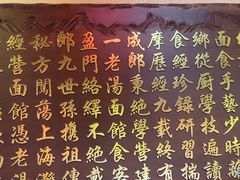 面食手藝少時
鄉從廚學技遍
食經錄研習揣
摩歷經九載終有
成郎秉絕學營
一老湯面館食客
盈門絡繹不絕
郎九世孫攜祖傳
秘方闖蕩上海灘
經營面館憑老湯